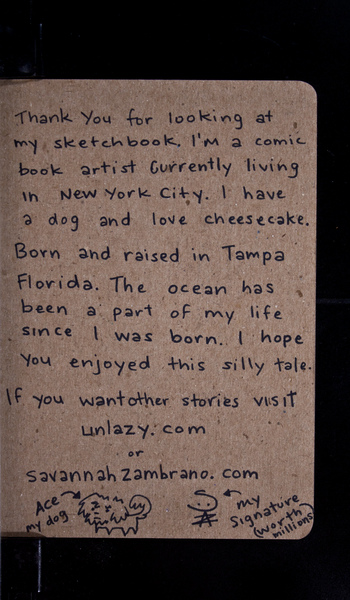 Thank You for looking at
my sketchbook. I'm a comic
book artist Currently living
in New York City. I have
a dog and love cheesecake.
Born and raised in Tampa
Florida. The ocean has
been a part of my life
since I was born. I hope
You enjoyed this silly tale.
If you want other stories visit
unlazy.com
or
savannahzambrano.com
Ace
my dog
my
signature
(worth
millions)